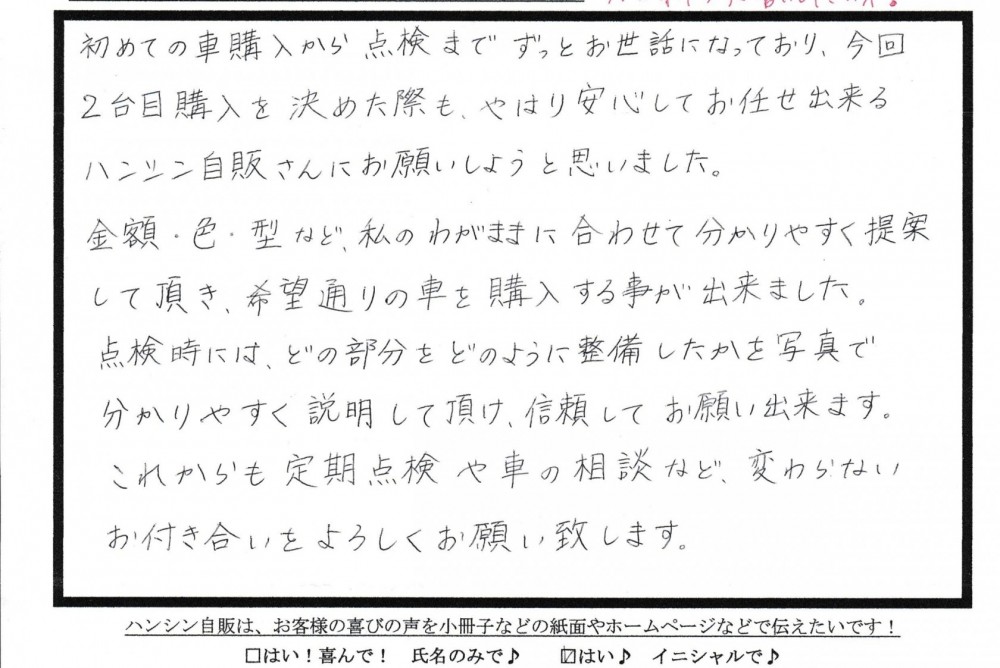 初めての車購入から点検までずっとお世話になっており、今回
2台目購入を決めた際も、やはり安心してお任せ出来る
ハンシン自販さんにお願いしようと思いました。
金額・色・型など、私のわがままに合わせて分かりやすく提案
して頂き、希望通りの車を購入する事が出来ました。
点検時には、どの部分をどのように整備したかを写真で
分かりやすく説明して頂け、信頼してお願い出来ます。
これからも定期点検や車の相談など、変わらない
お付き合いをよろしくお願い致します。
ハンシン自販は、お客様の喜びの声を小冊子などの紙面やホームページなどで伝えたいです!
□はい!喜んで! 氏名のみで♪ ☑はい♪ イニシャルで♪